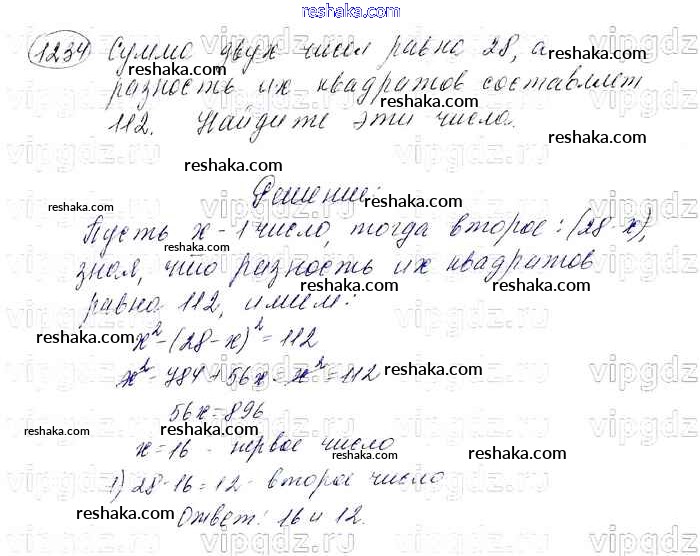 reshaka.com
1234 Сумма двух чисел равна 28, а
reshaka.com reshaka.com
разность их квадратов составляет
reshaka.com
112. Найдите эти числа.
reshaka.com reshaka.com
Решение:
reshaka.com reshaka.com
Пусть x - 1 число, тогда второе: (28-x),
reshaka.com
зная, что разность их квадратов
reshaka.com
равна 112, имеем:
reshaka.com
x² - (28 - x)² = 112
reshaka.com reshaka.com
x² - 784 + 56x - x² = 112
reshaka.com
56x = 896
reshaka.com
x = 16 - первое число
reshaka.com
1) 28-16=12 - второе число
reshaka.com reshaka.com
Ответ: 16 и 12.
reshaka.com
vipgdz